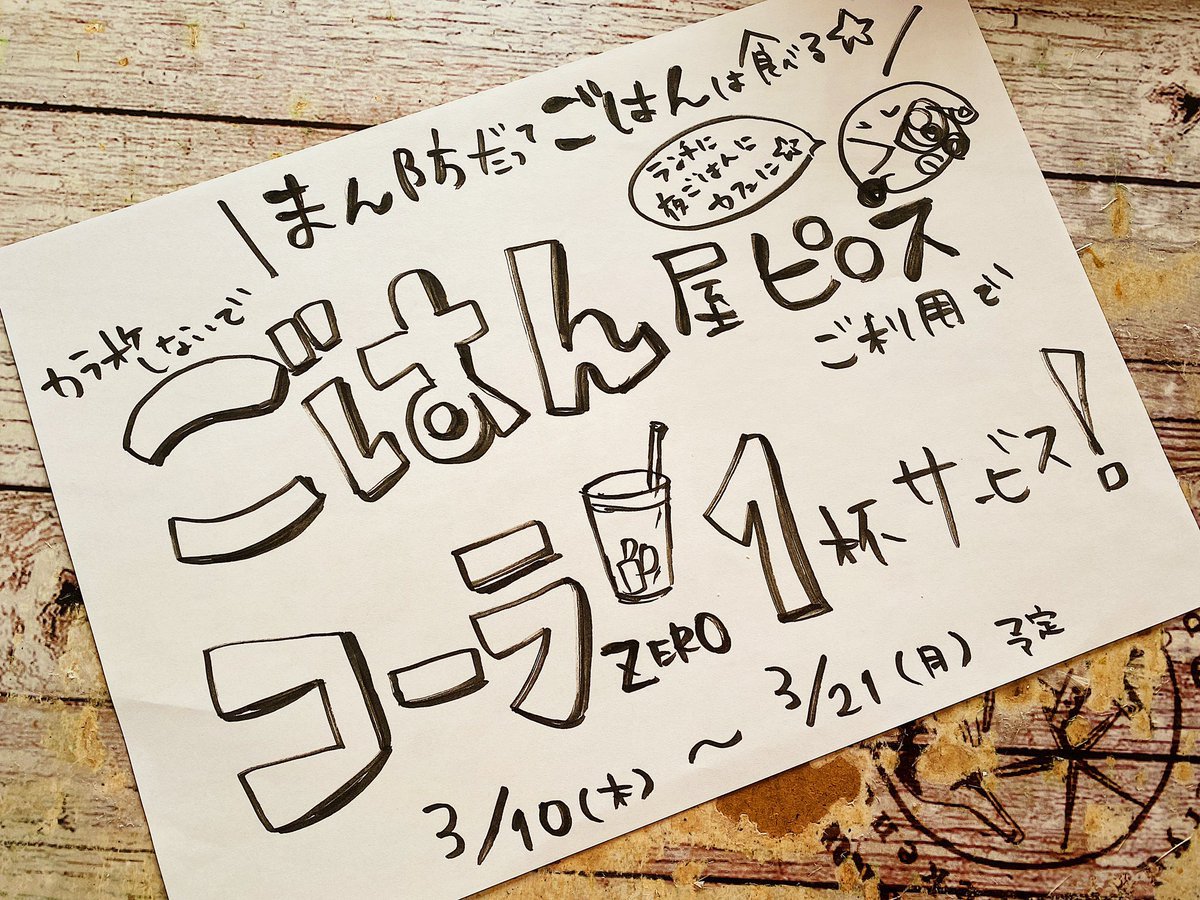 \ まん防だってごはんは食べる☆ /
ランチに
夜ごはんに
カフェに☆
カラ杯しないで
ごはん屋ピロス
ご利用で
コーラZERO 1杯サービス!
3/10(木) 〜 3/21(月) 予定